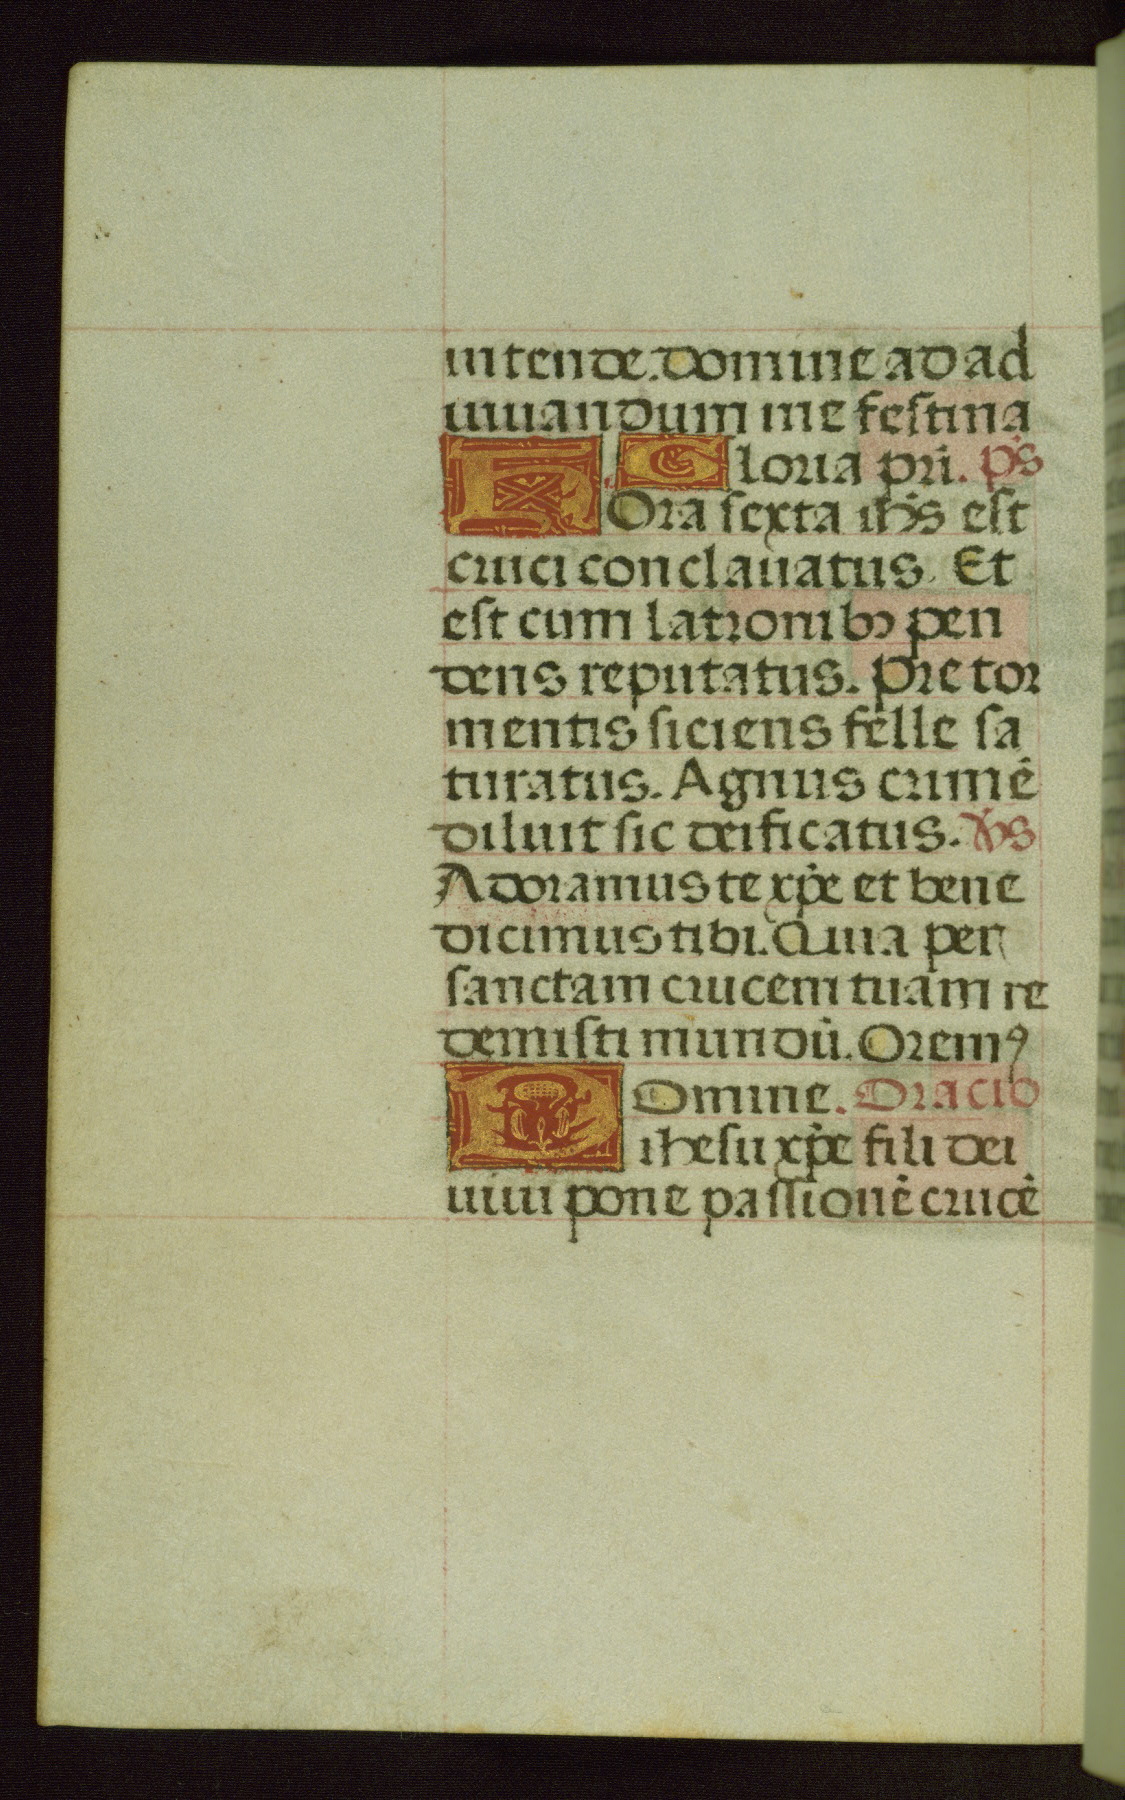 intende. Domine ad ad
iuuandum me festina
Gloria pri. ps
Hora sexta ihs est
cruci conclauatus. Et
est cum latronibꝫ pen
dens reputatus. Pre tor
mentis siciens felle sa
turatus. Agnus crimē
diluit sic deificatus. v̄s
Adoramus te xp̄e et bene
dicimus tibi. Quia per
sanctam crucem tuam re
demisti mundū. Oremꝰ
Domine. Oracio
ihesu xp̄e fili dei
uiui pone passionē crucē